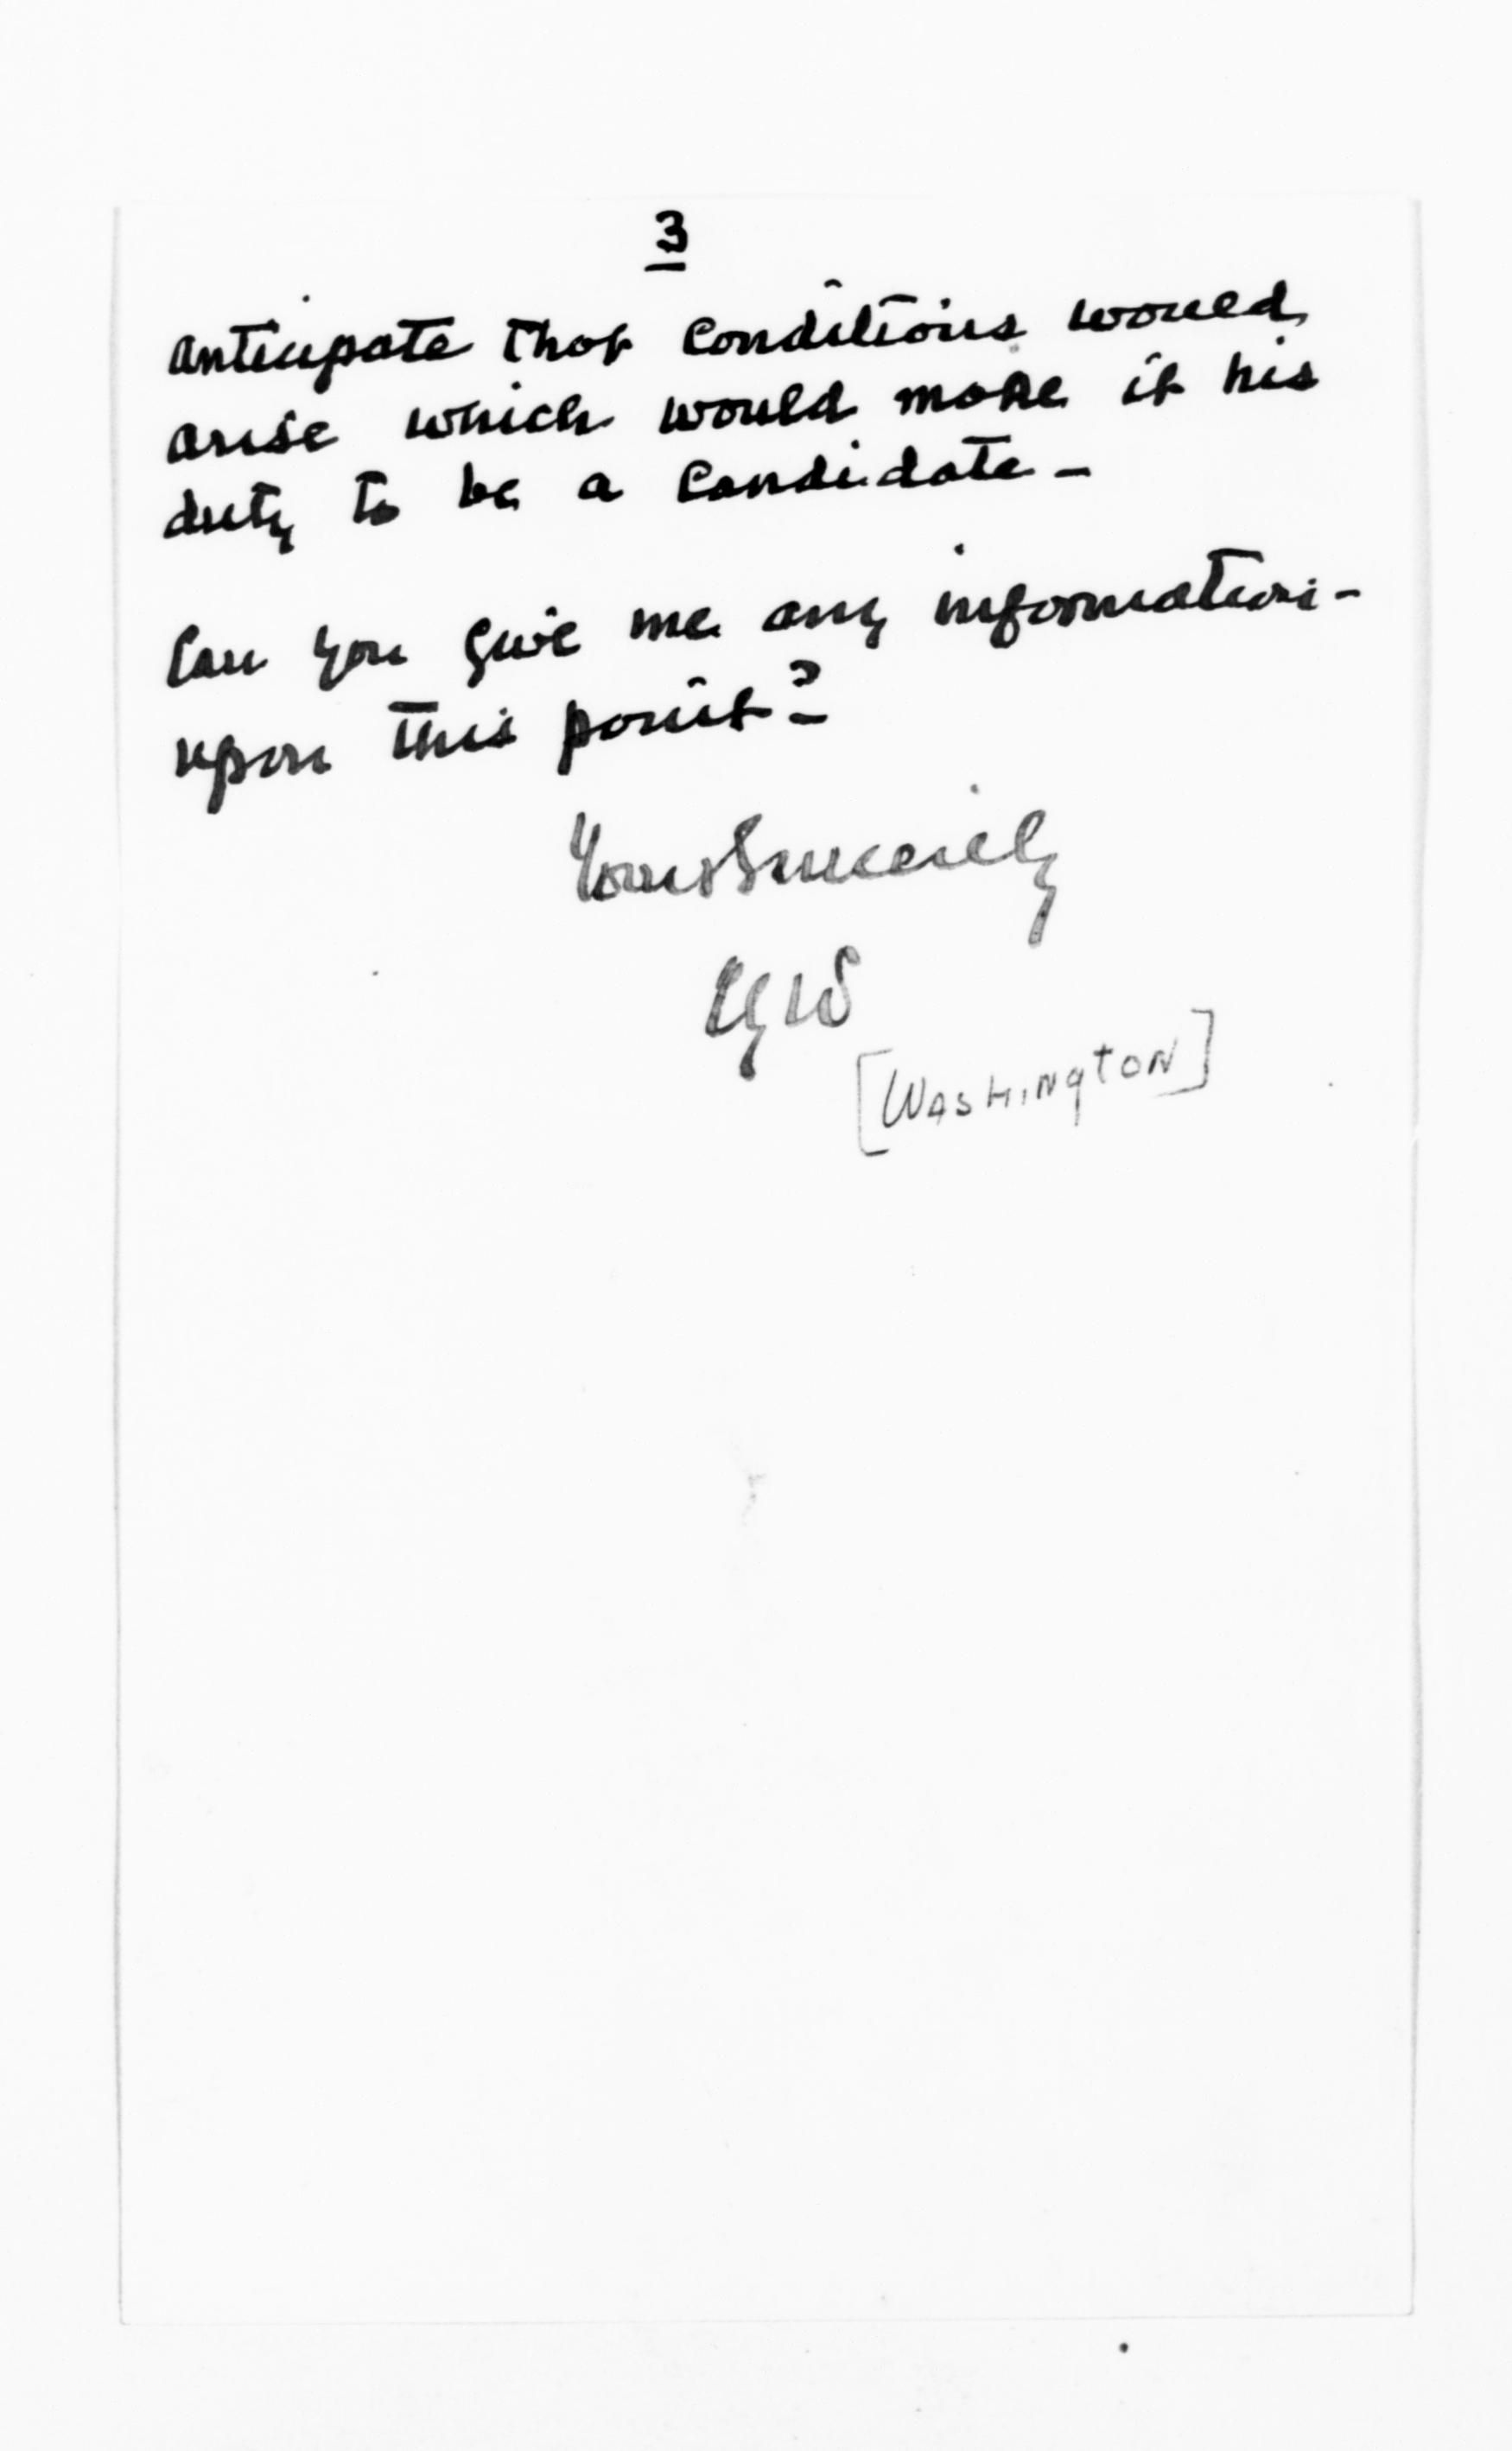 3
anticipate that conditions would
arise which would make it his
duty to be a candidate –
Can you give me any information –
upon this point? –
Yours Sincerely
CGW
[WASHINGTON]